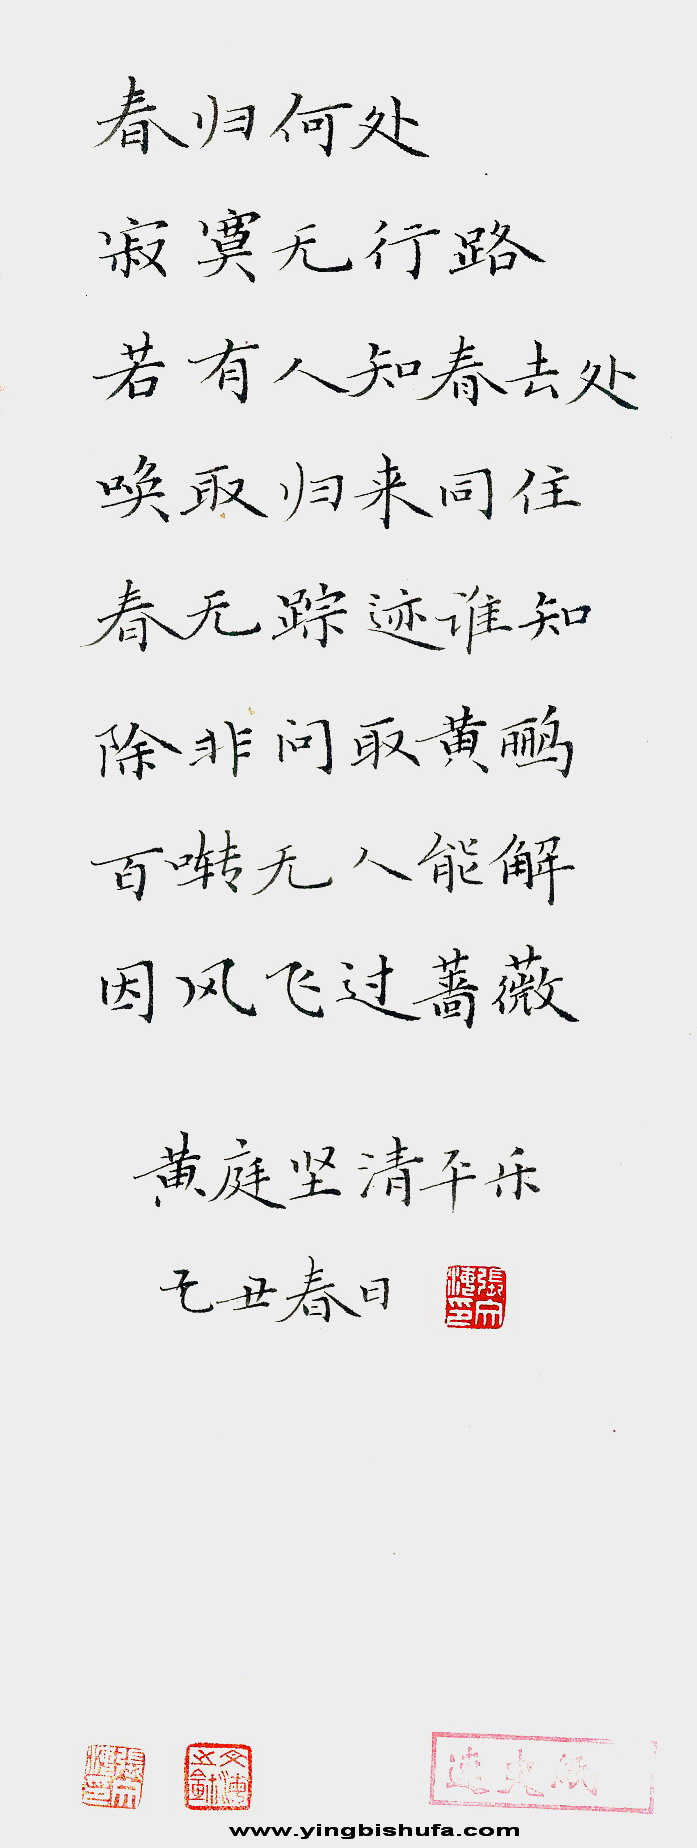 春归何处
寂寞无行路
若有人知春去处
唤取归来同住
春无踪迹谁知
除非问取黄鹂
百啭无人能解
因风飞过蔷薇
黄庭坚清平乐
乙丑春日
www.yingbishufa.com